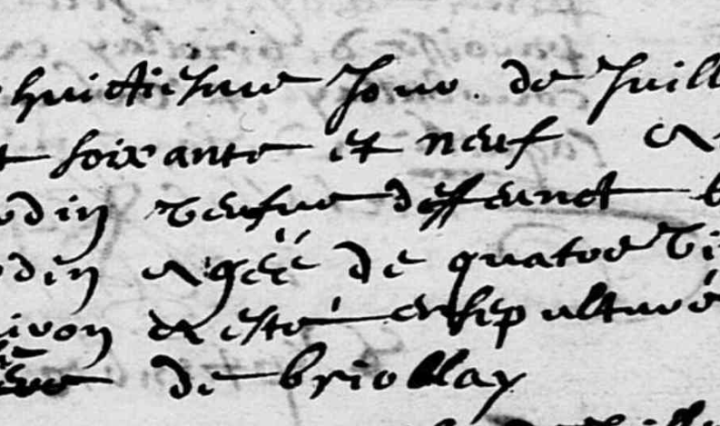 huictiesme Jour de Juill
t soixante et neuf
din veufve deffunct
din agéé de quatre vi
iron a esté ensepulturé
de briollay